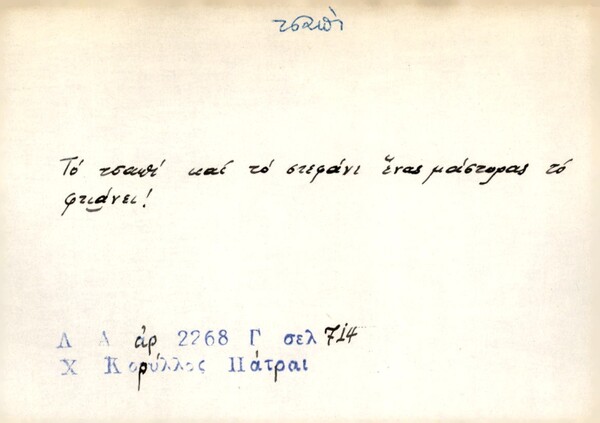 τσαπὶ
Τό τσαπί καί τό στεφάνι ἕνας μάστορας τό
φτιάνει!
Λ Α ἀρ 2268 Γ σελ 714
Χ Κορύλλος Πάτραι